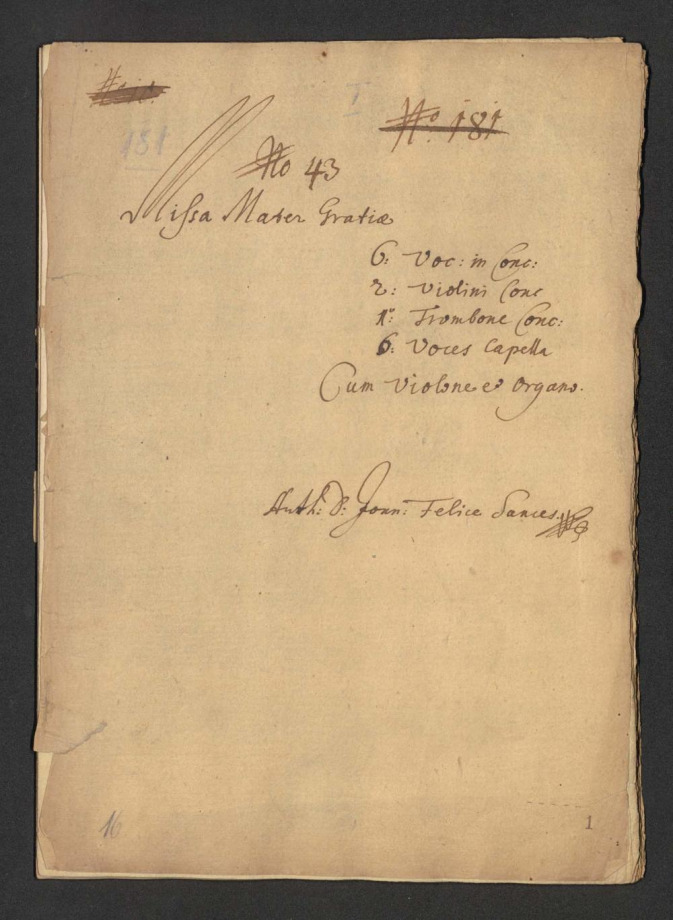 I
No. 181
181
No 43
Missa Mater Gratiæ
6: Voc: in Conc:
2: Violini Conc
1º Trombone Conc:
6: Voces Capella
Cum Violone et Organo.
Auth: D: Joan: Felice Sances.
16
1